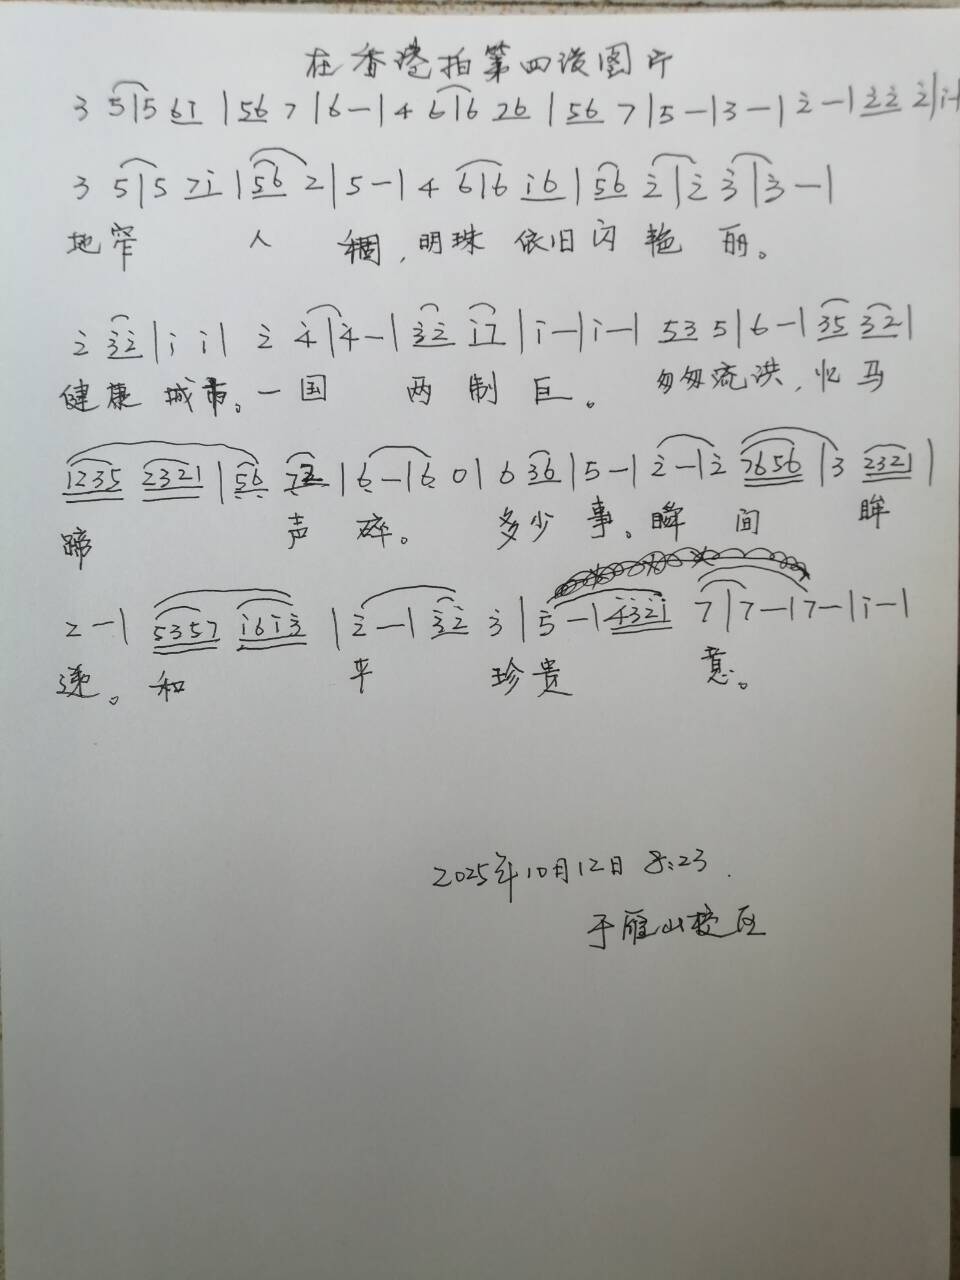 在香港拍第四波图片
3 5|5 6i |56 7|6-|4 6|6 26 |56 7|5-|3-|2̇-|2̇2̇ 2̇|i-|
3 5|5 7i |56 2|5-|4 6|6 i6|56 2̇|2̇ 3̇|3̇-|
地窄 人 稠,明珠 依旧闪艳 丽。
2̇ 3̇2̇|i i| 2̇ 4̇|4̇-|3̇2̇ i7|i-|i-| 53 5|6-|35 321|
健康 城市。一国 两制巨。 匆匆流洪,忆马
1235 2321|56 72|6-|6 0|6 36|5-|2̇-|2̇ 7656|3 2321|
蹄 声 碎。 多少事。瞬间 眸
2-|5357 i6i3̇|2̇-|3̇2̇ 3̇|5̇-|4̇3̇2̇i 7|7-|7-|i-|
逝。和 平 珍贵 意。
2025年10月12日 8:23.
于雁山校区